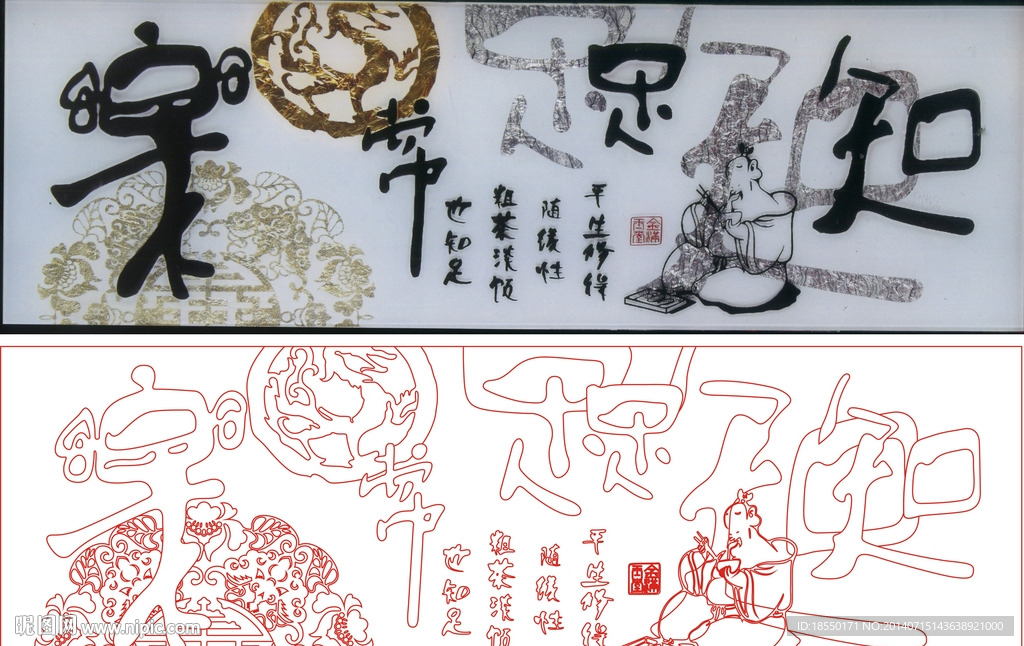 知足常樂
平生修得
随缘性
粗茶淡饭
也知足
知足常樂
平生修得
随缘性
粗茶淡饭
也知足
昵图网 www.nipic.com
ID:18550171 NO:20140715143638921000